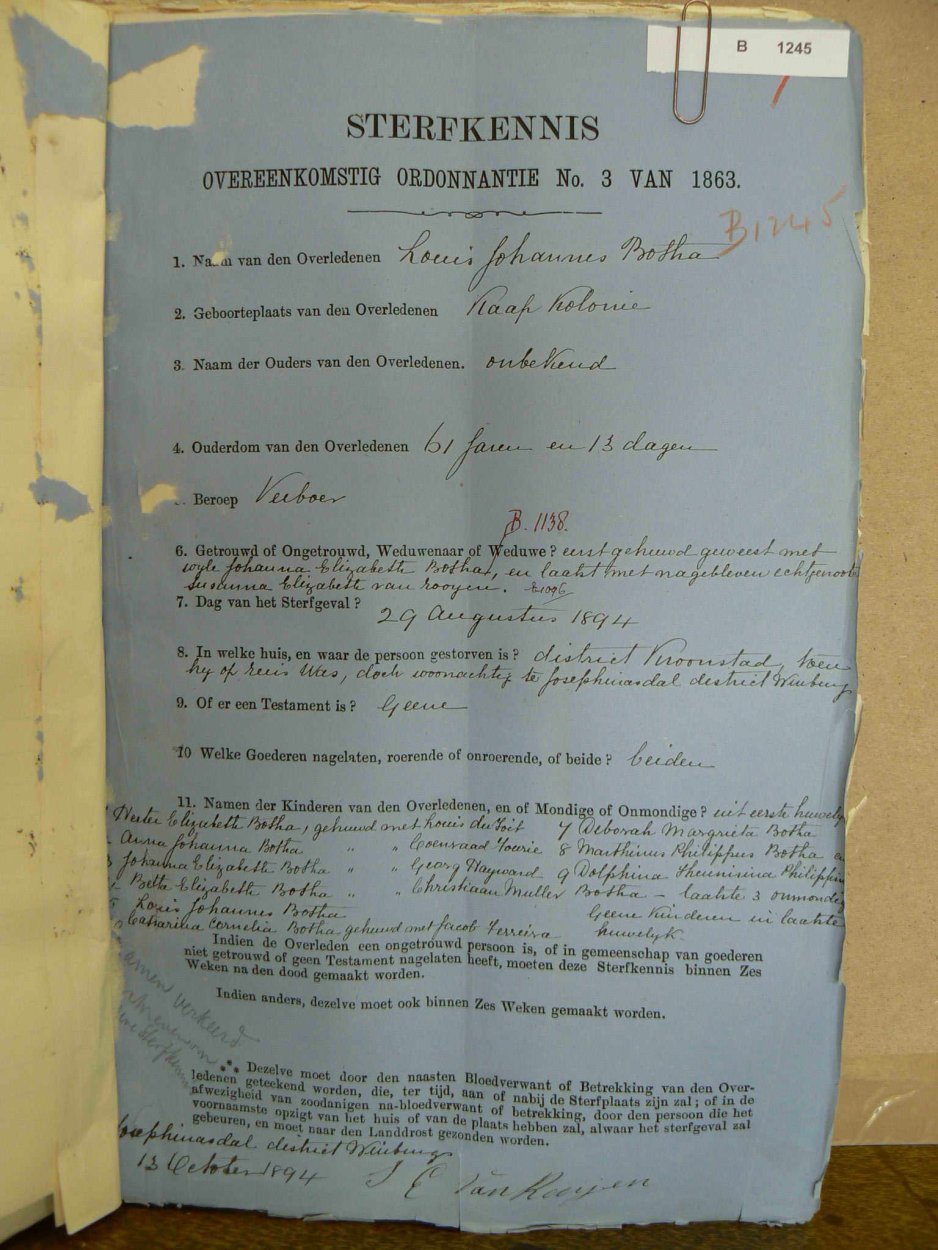 B 1245
STERFKENNIS
OVEREENKOMSTIG ORDONNANTIE No. 3 VAN 1863.
B1245
1. Naam van den Overledenen Louis Johannes Botha
2. Geboorteplaats van den Overledenen Kaap Kolonie
3. Naam der Ouders van den Overledenen. onbekend
4. Ouderdom van den Overledenen 61 Jaren en 13 dagen
Beroep Veeboer
B. 1138.
6. Getrouwd of Ongetrouwd, Weduwenaar of Weduwe? eerst gehuwd geweest met
wyle Johanna Elizabeth Botha, en laatst met nagebleven echtgenoote
Susanna Elizabeth van rooyen.
7. Dag van het Sterfgeval? 29 Augustus 1894
8. In welke huis, en waar de persoon gestorven is? district Kroonstad, toen
hy op reis was, doch woonachtig te Josephinasdal district Winburg
9. Of er een Testament is? Geene
10 Welke Goederen nagelaten, roerende of onroerende, of beide? beiden
11. Namen der Kinderen van den Overledenen, en of Mondige of Onmondige? uit eerste huwelyk
Hester Elizabeth Botha, gehuwd met Louis du Toit 7 Deborah Margrieta Botha
Anna Johanna Botha " " Coenraad Fourie 8 Marthinus Philippus Botha en
Johanna Elizabeth Botha " " Georg Hayward 9 Dolphina Theunisina Philippina
Betta Elizabeth Botha " " Christiaan Muller Botha - laatste 3 onmondig
Louis Johannes Botha Geene Kinderen in laatste
Catharina Cornelia Botha gehuwd met Jacob Ferreira huwelyk
Indien de Overleden een ongetrouwd persoon is, of in gemeenschap van goederen
niet getrouwd of geen Testament nagelaten heeft, moeten deze Sterfkennis binnen Zes
Weken na den dood gemaakt worden.
Indien anders, dezelve moet ook binnen Zes Weken gemaakt worden.
namen verkeerd
Dezelve moet door den naasten Bloedverwant of Betrekking van den Over-
ledenen geteekend worden, die, ter tijd, aan of nabij de Sterfplaats zijn zal; of in de
afwezigheid van zoodanigen na-bloedverwant of betrekking, door den persoon die het
voornaamste opzigt van het huis of van de plaats hebben zal, alwaar het sterfgeval zal
gebeuren, en moet naar den Landdrost gezonden worden.
Josephinasdal district Winburg
13 October 1894 S E Van Rooyen